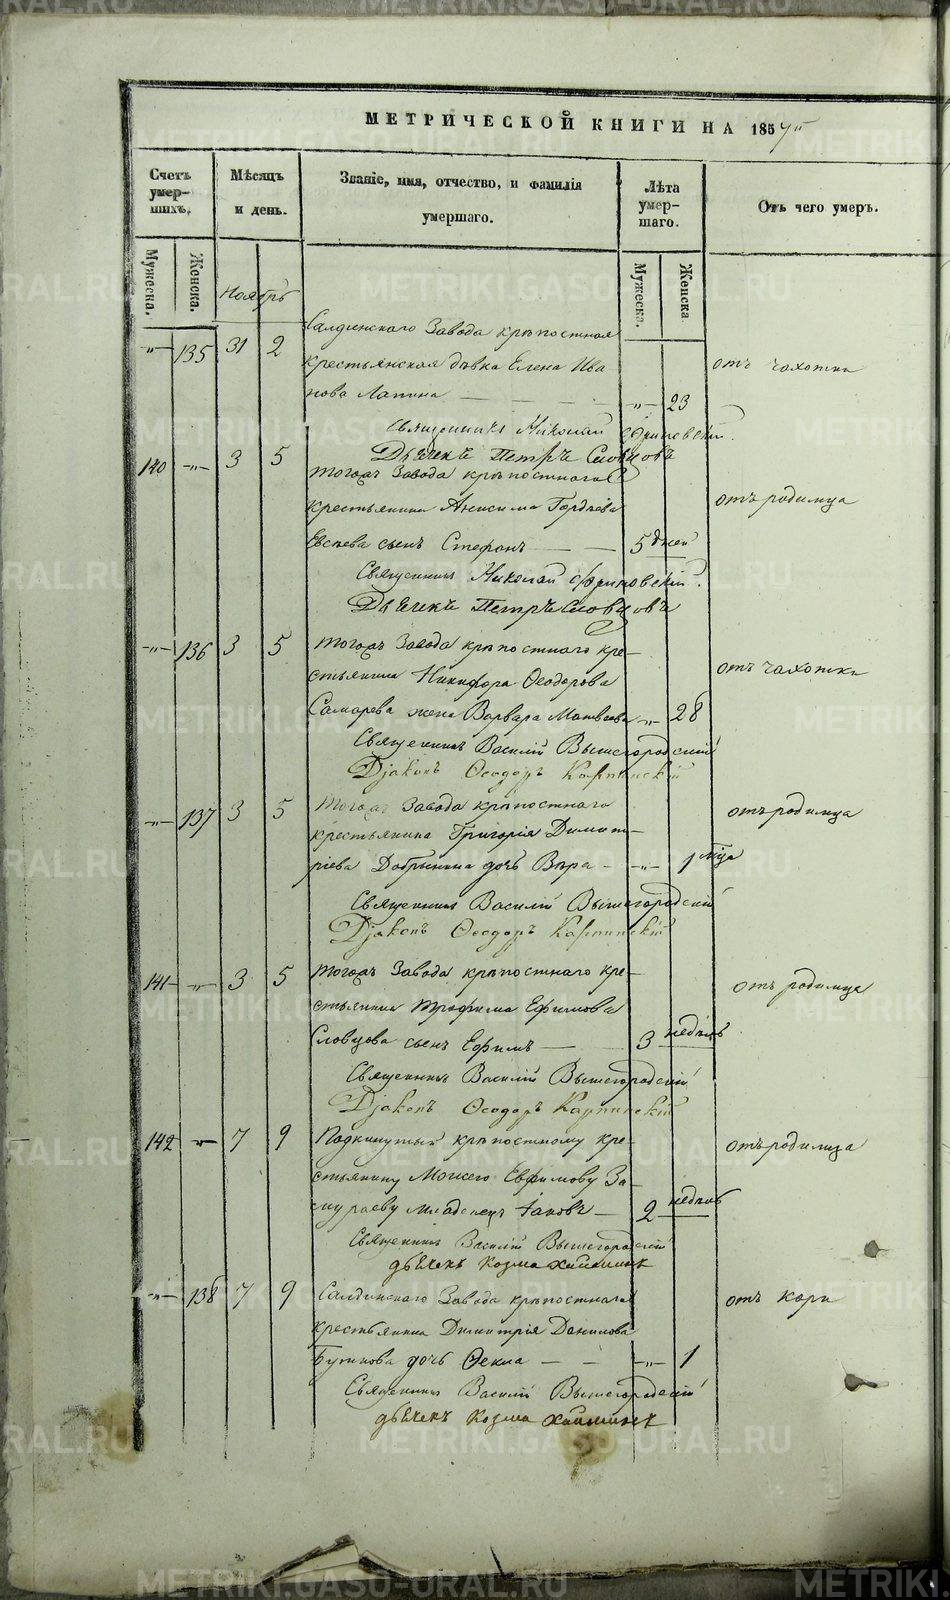 МЕТРИЧЕСКОЙ КНИГИ НА 185
Счетъ умер- шихъ.
Мѣсяцъ и день.
Званіе, имя, отчество, и фамилія умершаго.
Лѣта умер- шаго.
Отъ чего умеръ.
Мужеска. Женска. Мужеска. Женска
Ноябрь
Салдинскаго Завода крѣпостная
" 135 31 2 крестьянская дѣвка Елена Ива отъ чахотки
нова Лапина " 23
Священникъ Николай
Дьячекъ Петръ Словцовъ
140 " 3 5 тогожъ Завода крѣпостнаго
крестьянина Анисима Гордѣева отъ родимца
Евсѣева сынъ Стефанъ 5 дней
Священникъ Николай
Дьячекъ Петръ Словцовъ
" 136 3 5 тогожъ Завода крѣпостнаго кре-
стьянина Никифора Ѳеодорова отъ чахотки
Самарева жена Варвара Матвеева " 28
Священникъ Василій Вышегородскій
Діаконъ Ѳеодоръ Карпинскій
" 137 3 5 тогожъ Завода крѣпостнаго отъ родимца
крестьянина Григорія Димит-
ріева Добрынина дочь Вѣра " 1 мца
Священникъ Василій Вышегородскій
Діаконъ Ѳеодоръ Карпинскій
141 " 3 5 тогожъ Завода крѣпостнаго кре- отъ родимца
стьянина Трофима Ефимова
Словцова сынъ Ефимъ 3 недѣль
Священникъ Василій Вышегородскій
Діаконъ Ѳеодоръ Карпинскій
142 " 7 9 Подкинутый крѣпостному кре- отъ родимца
стьянину Моисею Евфимову За-
младенецъ Іаковъ 2 недѣль
Священникъ Василій Вышегородскій
дьячекъ Козма
" 138 7 9 Салдинскаго Завода крѣпостнаго отъ кори
крестьянина Димитрія Данилова
дочь Ѳекла " 1
Священникъ Василій Вышегородскій
дьячекъ Козма
METRIKI.GASO-URAL.RU